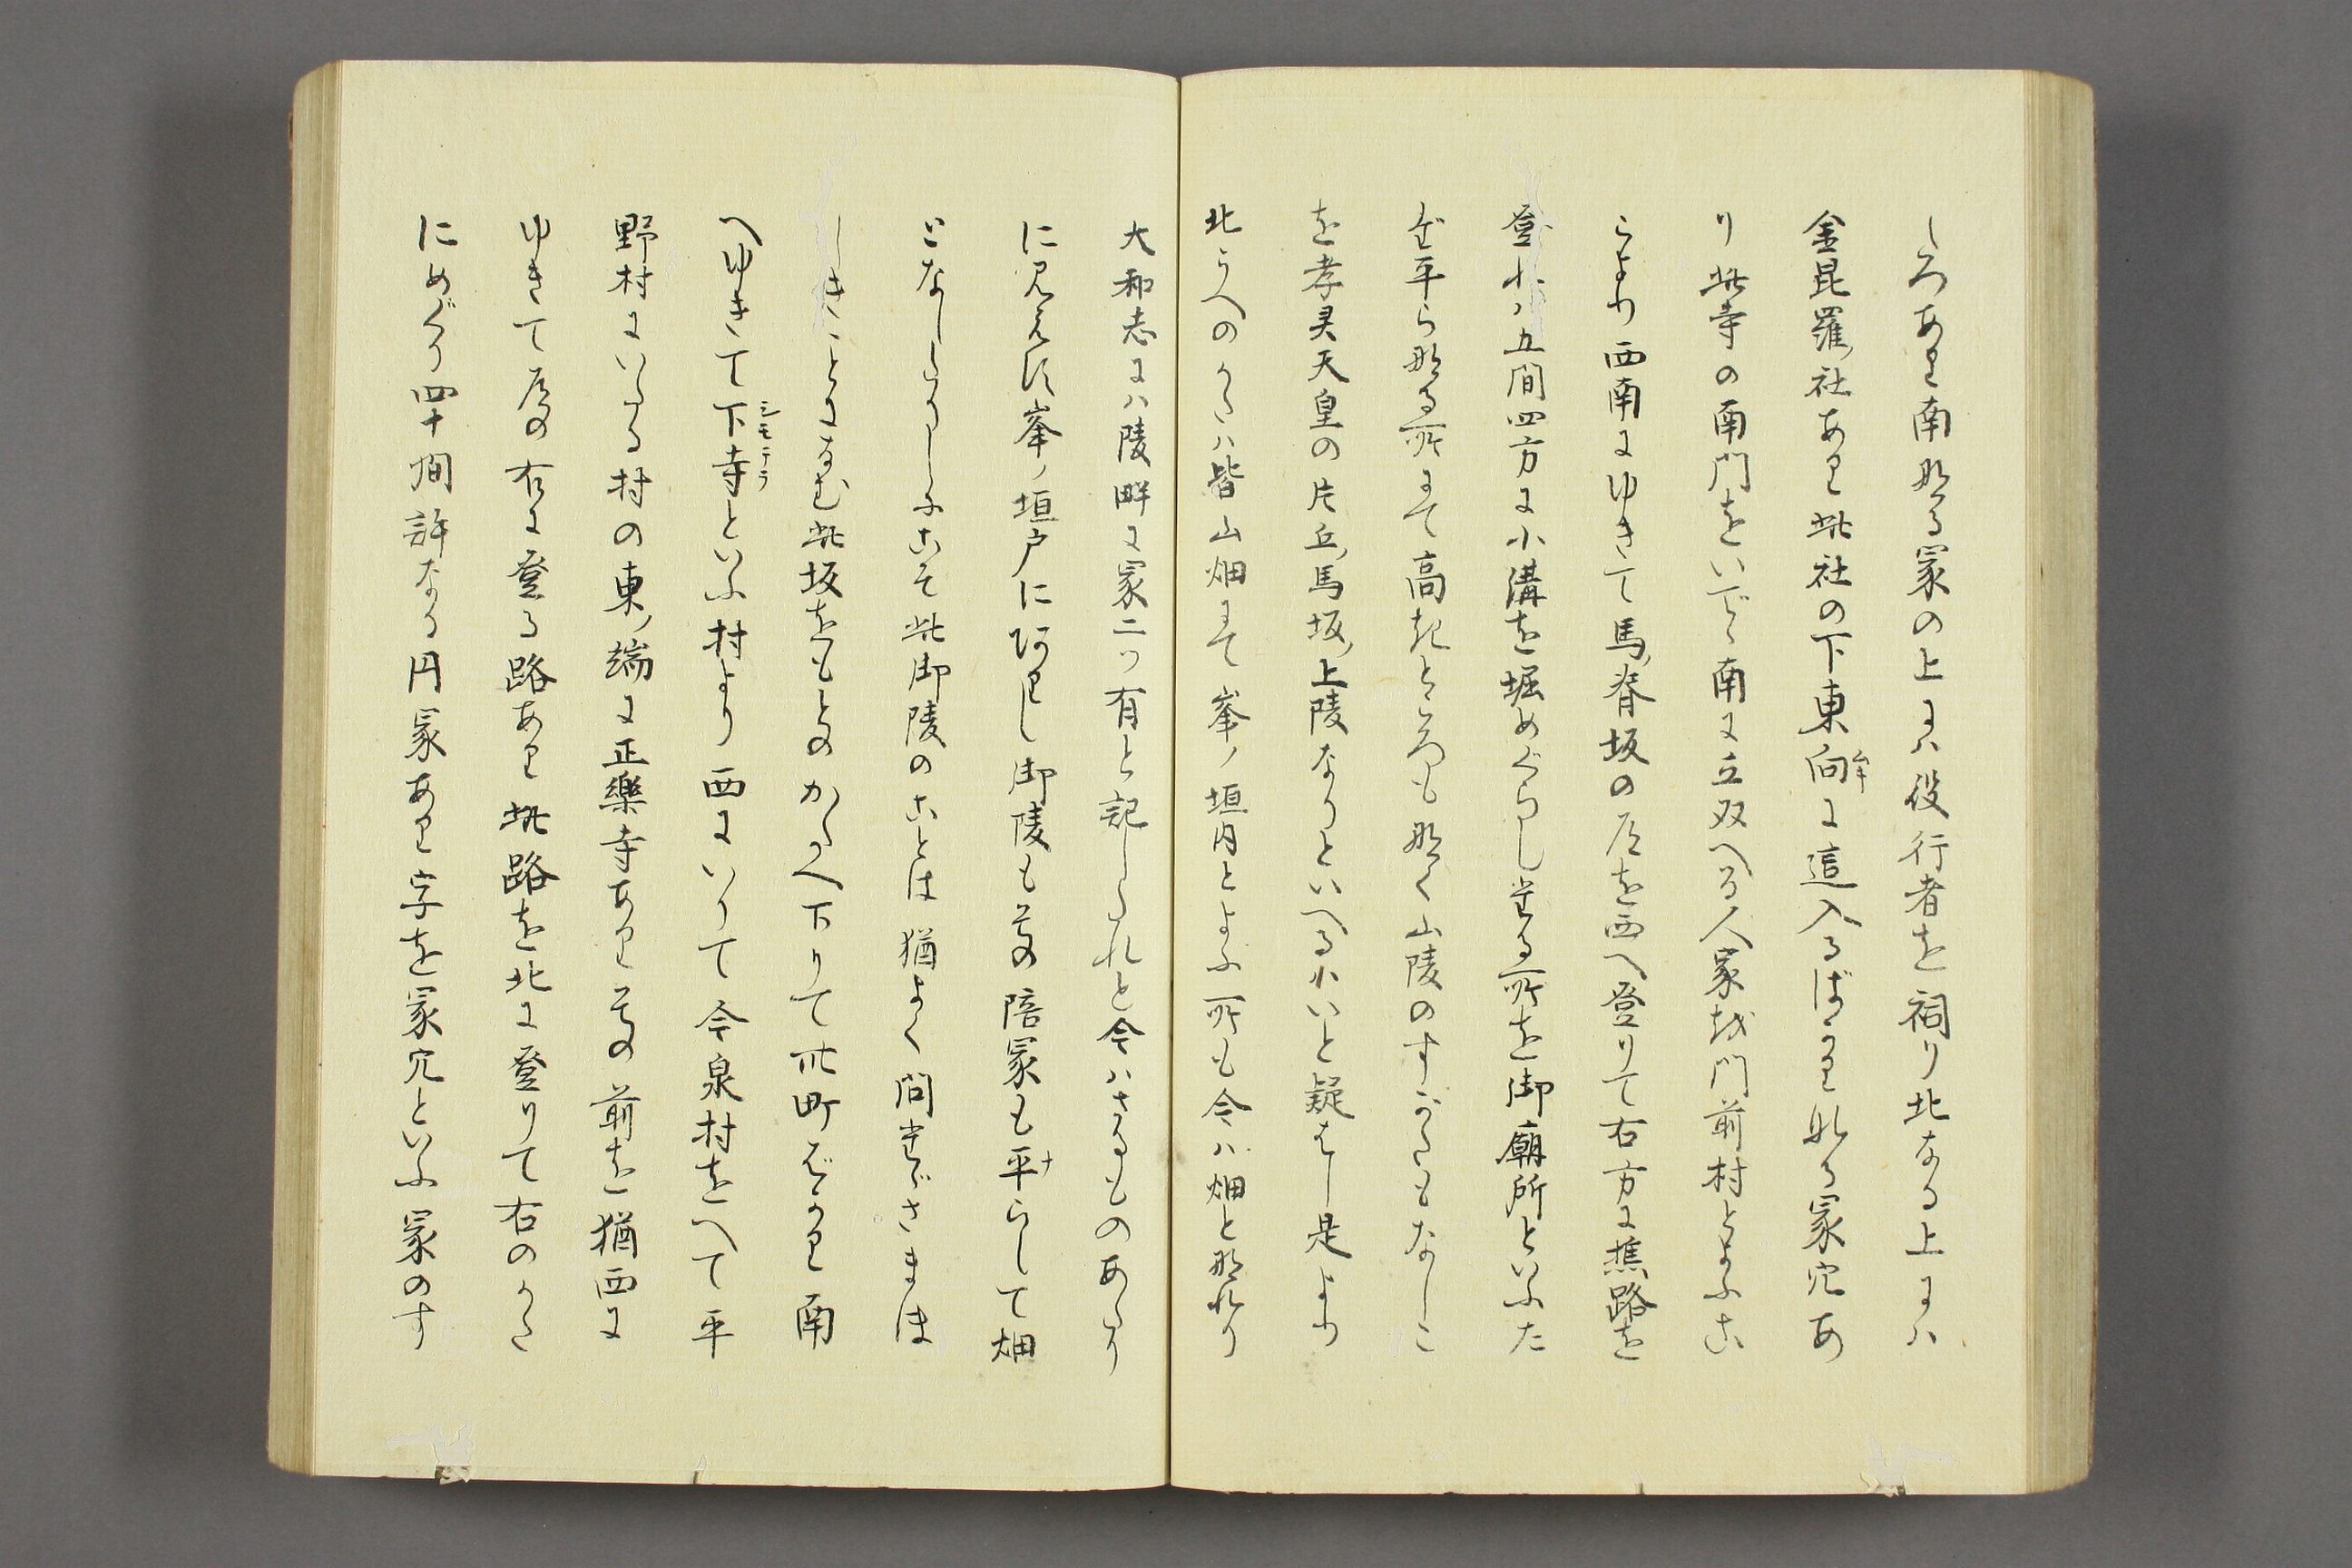 しろあり南なる冢の上には役行者を祠り北なる上には
金毘羅ノ社あり此社の下東向に這入るばかりなる冢穴あ
り此寺の南門をいでゝ南に立双へる人家を門前村とよふこ
こより西南にゆきて馬ノ脊坂の尾を西へ登りて右方に樵路を
登れハ五間四方に小溝を堀めぐらしたる所を御廟所といふた
だ平らなる所にて高きところも無く山陵のすがたもなしこ
を孝灵天皇の片丘ノ馬坂ノ上陵なりといへるハいと疑はし是より
北うへのかたハ皆山畑にて峯ノ垣内とよふ所も今ハ畑と那れり
大和志にハ陵畔に冢二ツ有と記したれと今ハさるものあたり
に見えす峯ノ垣戸に在し御陵も其の陪冢も平らして畑
となしたりしにこそ此御陵のことは猶よく問たださまほ
しきことになむ此坂をもとのかたへ下りて廾町ばかり南
へゆきて下寺シモテラといふ村より西にいりて今泉村をへて平
野村にいたる村の東ノ端に正樂寺あり其の前を猶西に
ゆきて尾の右に登る路あり此路を北に登りて右のかた
にめぐり四十間許なる円冢あり字を冢穴といふ冢のす